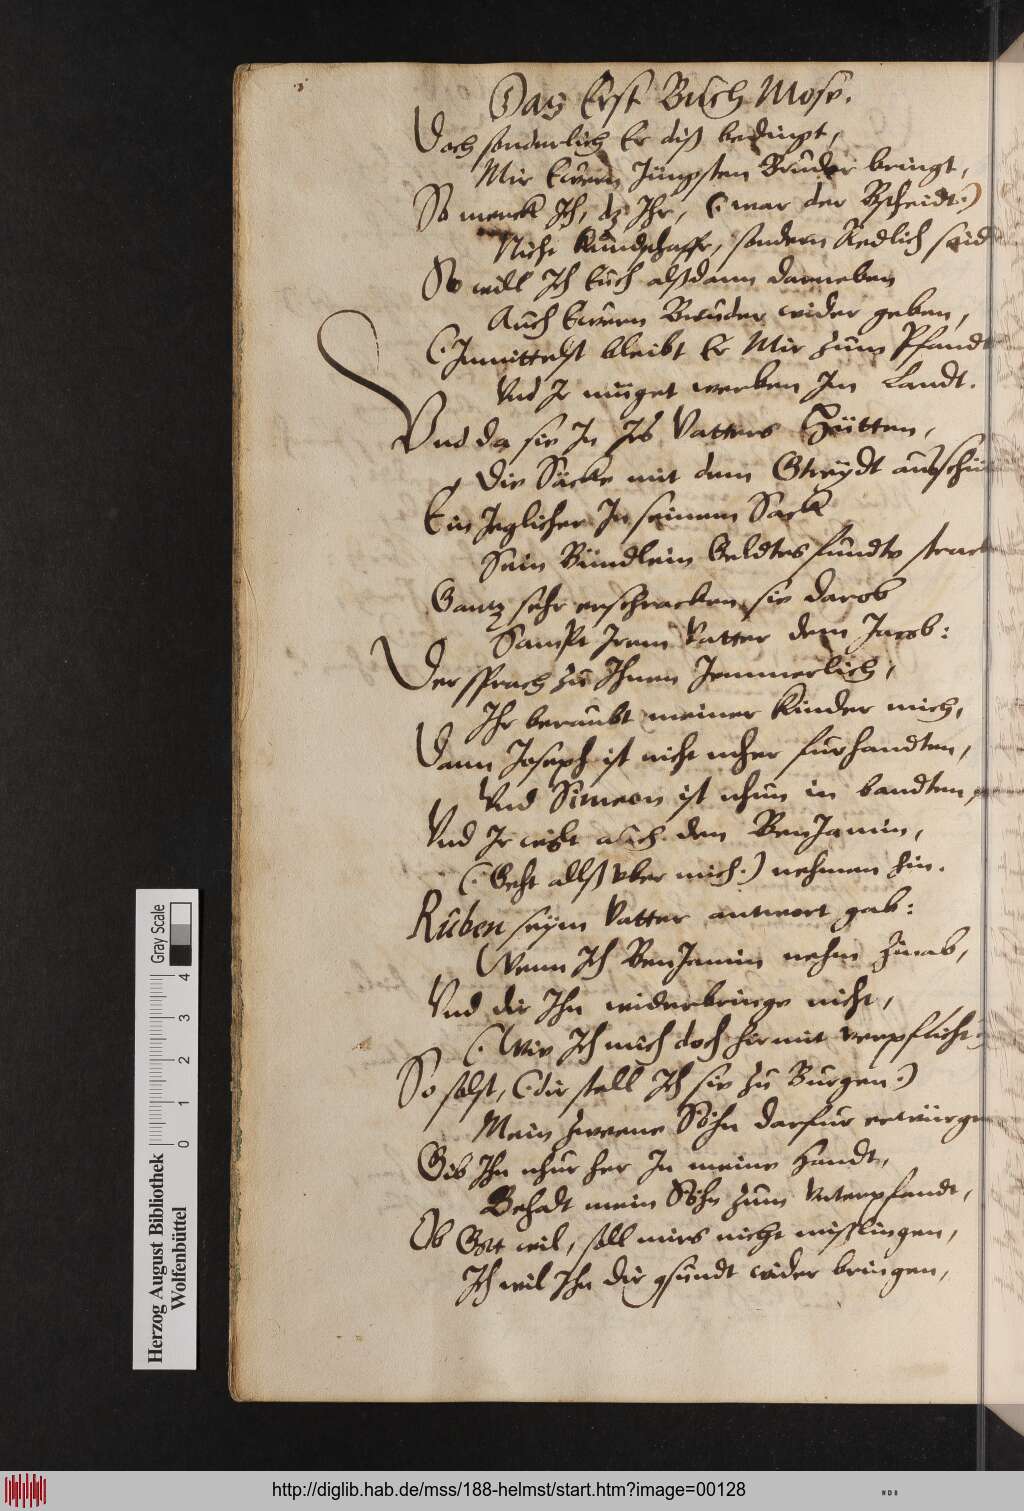 Das Erst Buch Mose.
Doch sonderlich Er diß bedingt,
Mir Ewern Jüngsten Bruder bringt,
So merck Ich, dz Ihr, (: war der Bscheidt :)
Nicht Kundschaffr, sondern Redlich seid
So will Ich Euch alßdann darneben
Auch Ewern Bruder wider geben,
(: Inmittelst bleibt Er Mir zum Pfandt
Vnd Ir müget werben Im Landt.
Vnd da sie In Irs Vatters Hütten,
Die Säcke mit dem Gtreydt außschüt
Ein Jeglicher In seinem Sack
Sein Bündlein Geldtes fundt strack
Gantz sehr erschracken sie darob
Sampt Irem Vatter dem Jacob:
Der sprach zu Ihnen Jemmerlich,
Ihr beraubt meiner Kinder mich,
Dann Joseph ist nicht mher furhandten,
Vnd Simeon ist nhun in bandten,
Vnd Ir wist auch den BenJamin,
(: Geht alls vber mich :) nehmen hin.
Ruben seym Vatter antwort gab:
Wenn Ich BenJamin nehm hinab,
Vnd dir Ihn widerbringe nicht,
(: Wie Ich mich doch hirmit verpflicht
So solst, (: dir stell Ich sie zu Burgen :)
Mein zweene Söhn darfur erwürgen
Gib Ihn nhur her In meine Handt,
Behalt mein Söhn zum Vnterpfandt,
Ob Gott wil, soll mirs nicht misslingen,
Ich wil Ihn dir gsundt wider bringen,
Herzog August Bibliothek
Wolfenbüttel
0 1 2 3 4
Gray Scale
http://diglib.hab.de/mss/188-helmst/start.htm?image=00128